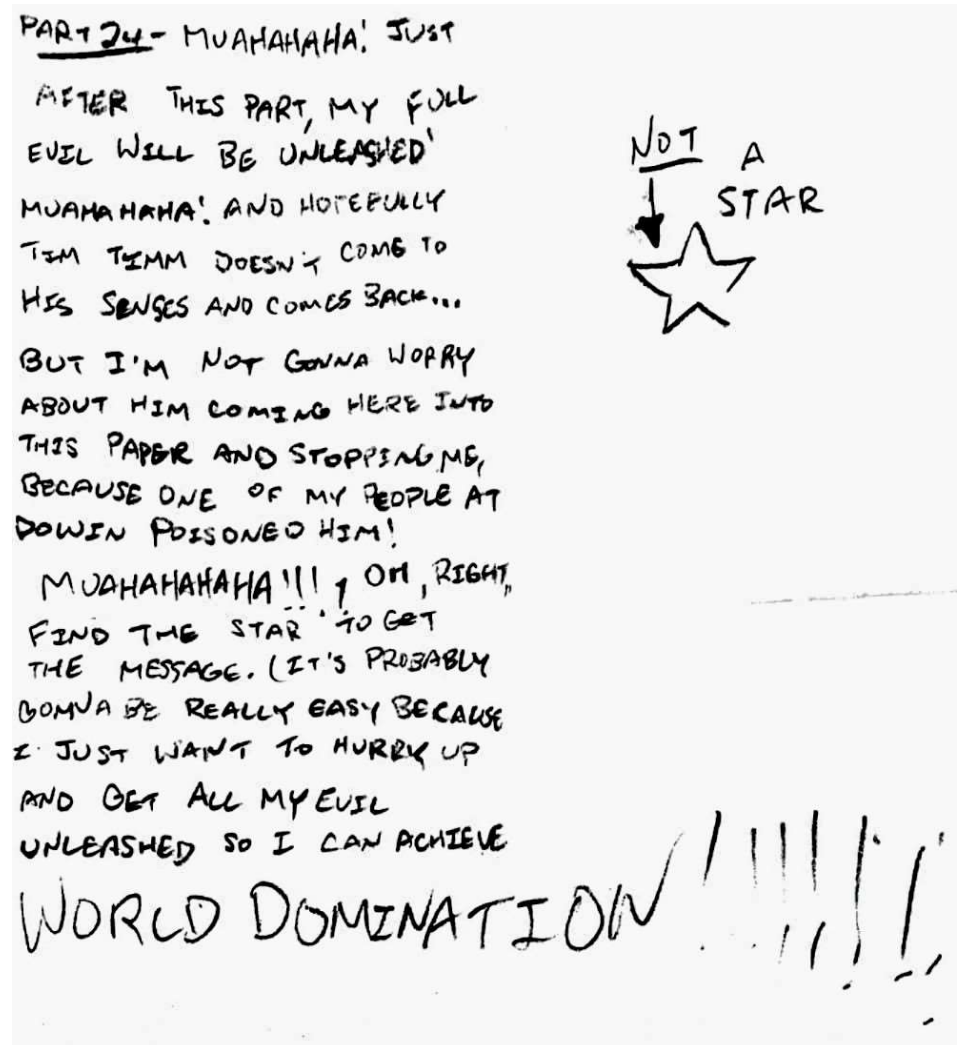 PART 24- MUAHAHAHA! JUST
AFTER THIS PART, MY FULL
EVIL WILL BE UNLEASHED!
MUAHAHAHA! AND HOPEFULLY
TIM TIMM DOESN'T COME TO
HIS SENSES AND COMES BACK...
BUT I'M NOT GONNA WORRY
ABOUT HIM COMING HERE INTO
THIS PAPER AND STOPPING ME,
BECAUSE ONE OF MY PEOPLE AT
DOWIN POISONED HIM!
MUAHAHAHAHA!!!, OH, RIGHT,
FIND THE STAR TO GET
THE MESSAGE. (IT'S PROBABLY
GONNA BE REALLY EASY BECAUSE
I JUST WANT TO HURRY UP
AND GET ALL MY EVIL
UNLEASHED SO I CAN ACHIEVE
WORLD DOMINATION!!!!!!!
NOT A
STAR